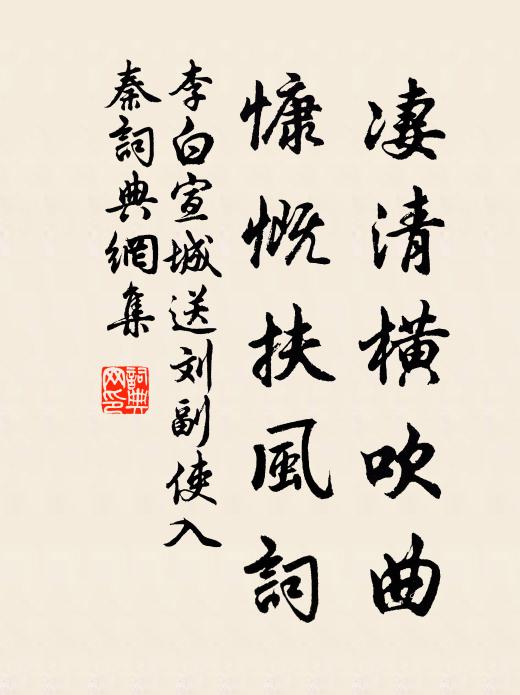 凄清橫吹曲
慷慨扶風詞
李白宣城送刘副使入
秦詞典網集
詞典网印